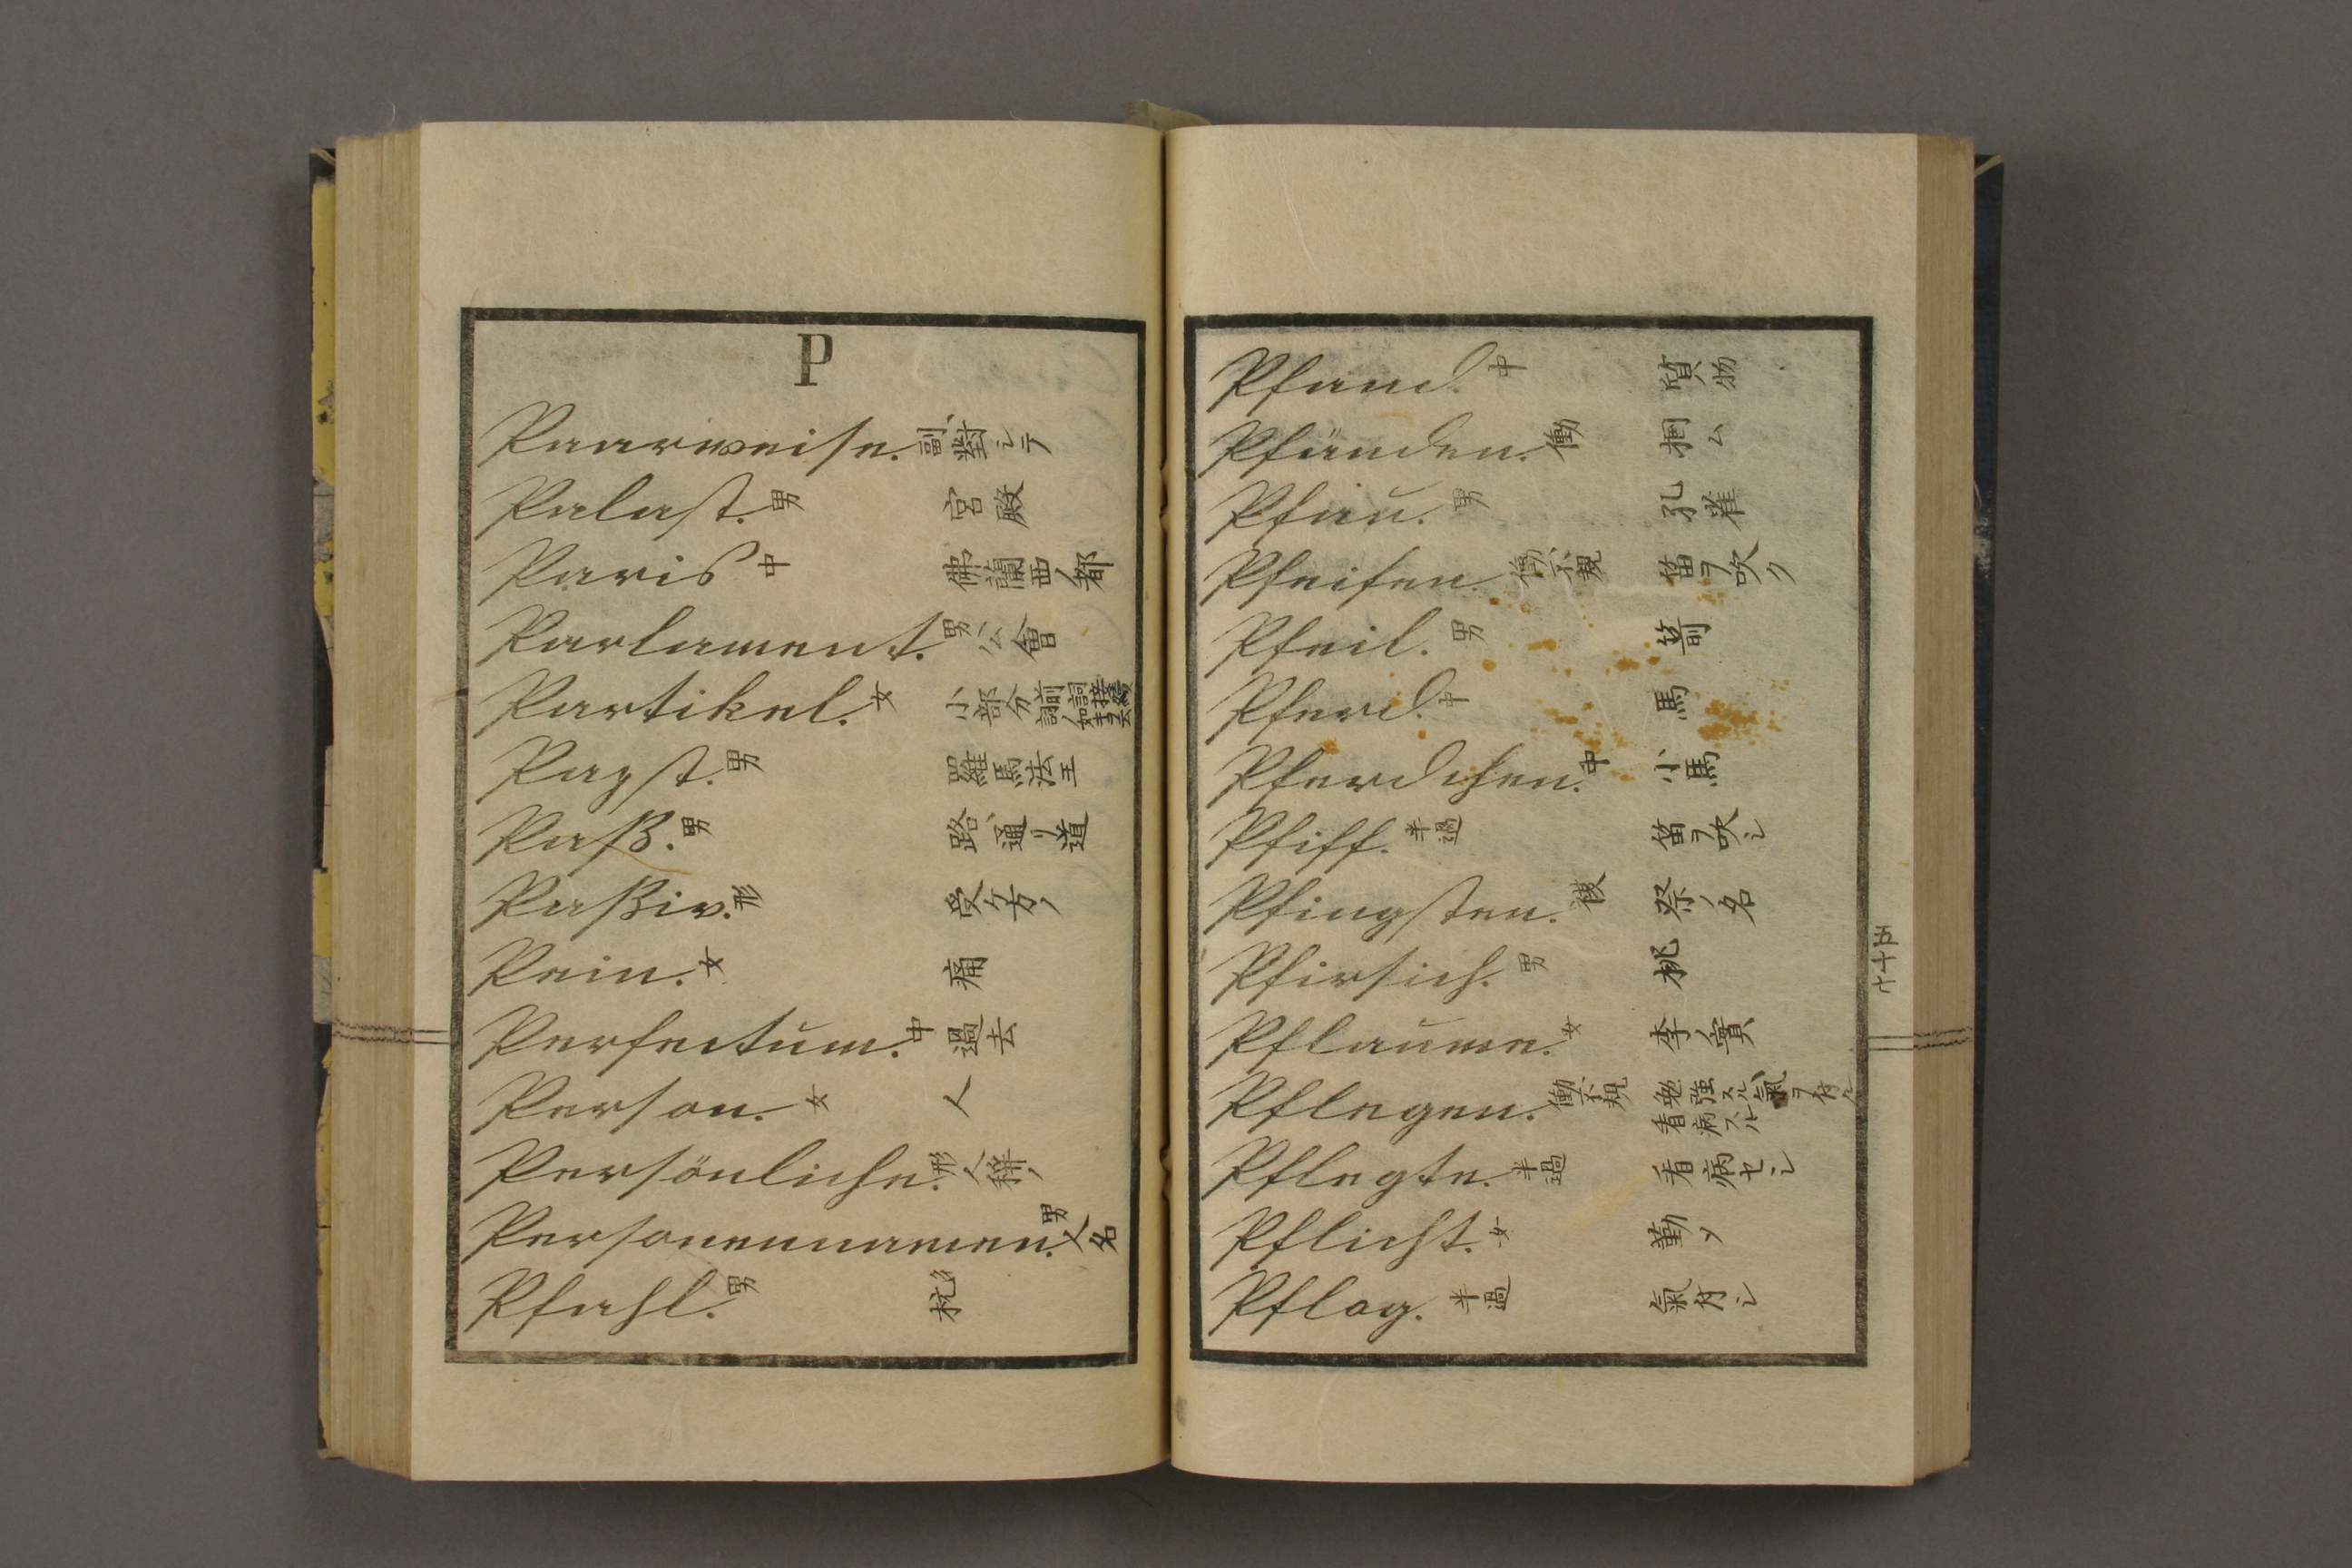 P
Paarweise. 副 對シテ
Palast. 男 宮殿
Paris 中 佛蘭西ノ都
Parlament. 男 公會
Partikel. 女 小部分
Papst. 男 羅馬法王
Paß. 男 路、通リ道
Paßiv. 形 受ケ方ノ
Pein. 女 痛
Perfectum. 中 過去
Person. 女 人
Persönliche. 形 人稱ノ
Personennamen. 男 人名
Pfahl. 男 杭
Pfand. 中 質物
Pfänden. 働 掴ム
Pfau. 男 孔雀
Pfeifen. 働、不規 笛ヲ吹ク
Pfeil. 男 箭
Pferd. 中 馬
Pferdchen. 中 小馬
Pfiff. 半過 笛ヲ吹シ
Pfingsten. 複 祭ノ名
Pfirsich. 男 桃
Pflaume. 女 李ノ實
Pflegen. 働、不規 勉強スル、氣ヲ付ル 看病スル
Pflegte. 半過 看病セシ
Pflicht. 女 勤メ
Pflog. 半過 氣付シ
五十七